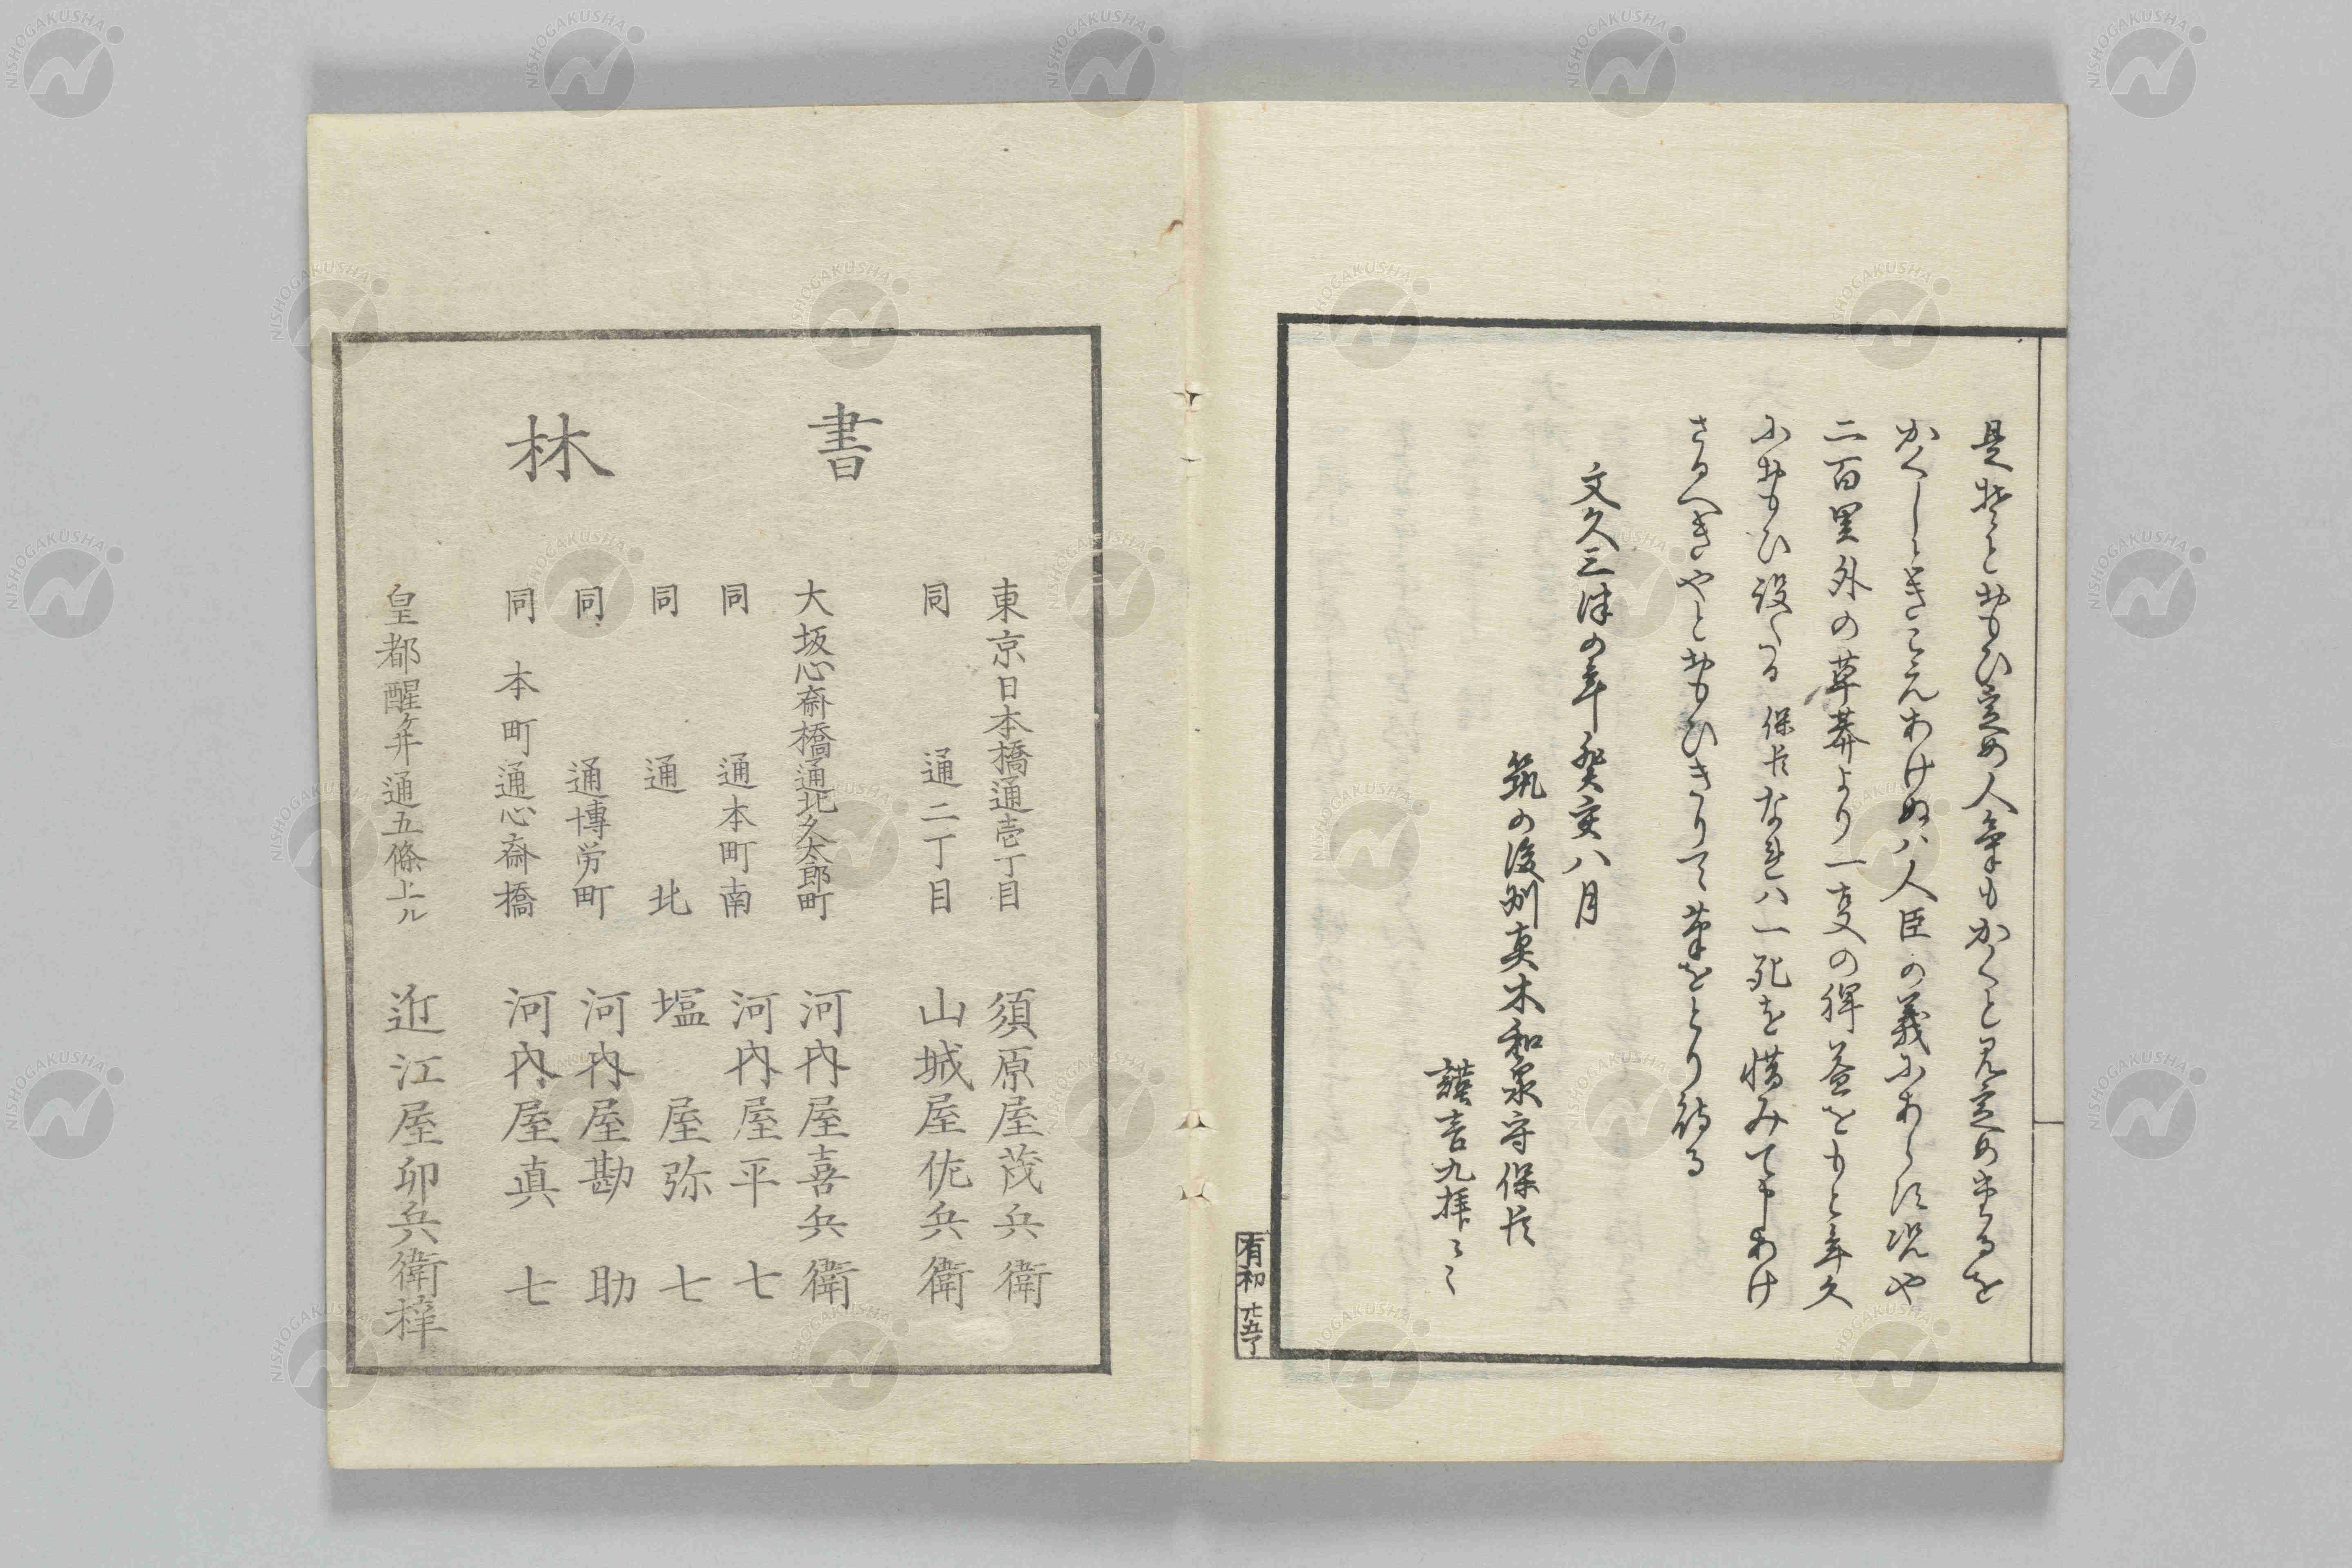 是非とおもひ定め人氣もかくと見定めまるを
かくしときこえんあけぬハ人臣の義にあらす况や
二百里外の草莽より一支の裨益をもと年久
におもひ設くる保臣なれハ一死を惜みて申あけ
さるへきやとおもひきりて筆をとり侍る
文久三年の年癸亥八月
筑の後州真木和泉守保臣
謹言九拝〻〻
有初 廿五了
書林
東京日本橋通壱丁目 須原屋茂兵衛
同 通二丁目 山城屋佐兵衛
大坂心斎橋通北久太郎町 河内屋喜兵衛
同 通本町南 河内屋平七
同 通北 塩屋弥七
同 通博労町 河内屋勘助
同 本町通心斎橋 河内屋真七
皇都醒ヶ井通五條上ル 近江屋卯兵衛梓
NISHOGAKUSHA